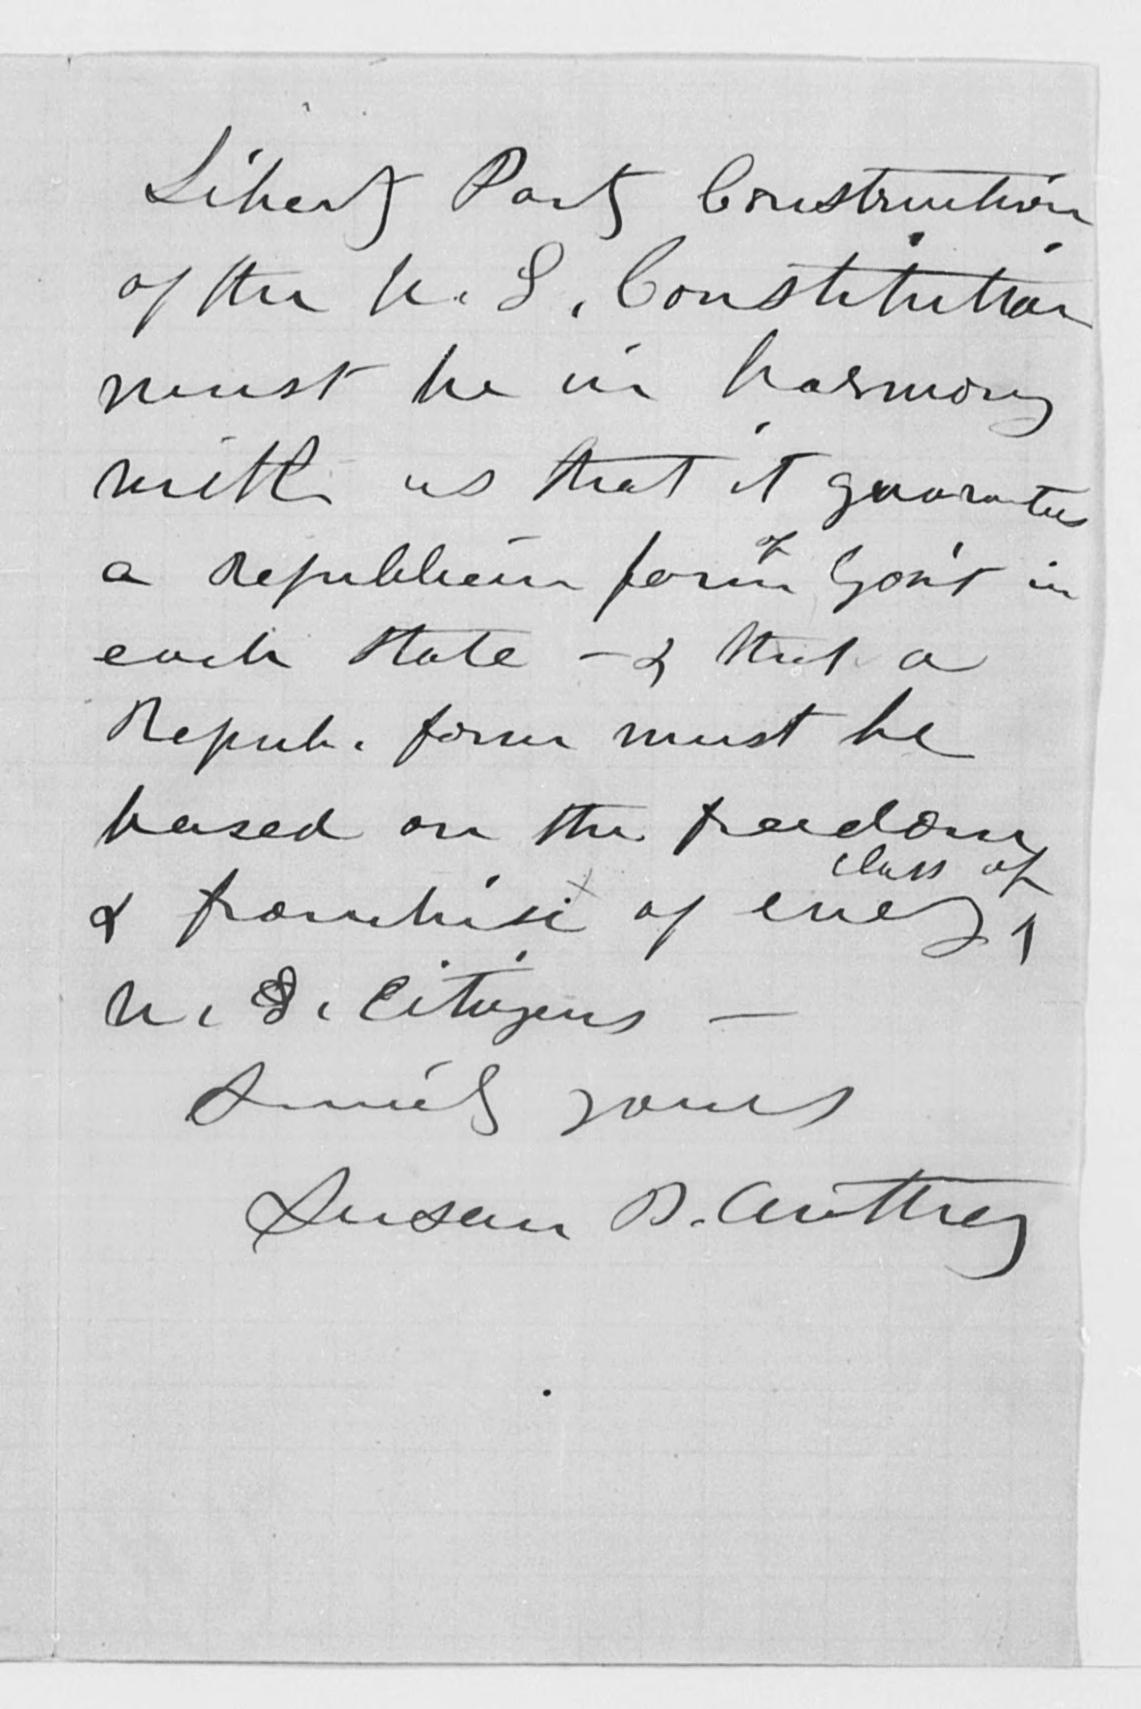 Liberty Party Construction
of the U. S. Constitution
must be in harmony
with us that it guarantees
a Republican form of Gov't in
each State — & that a
Repub. form must be
based on the freedom
& franchise of every class of
U. S. Citizens —
Sincerely yours
Susan B. Anthony